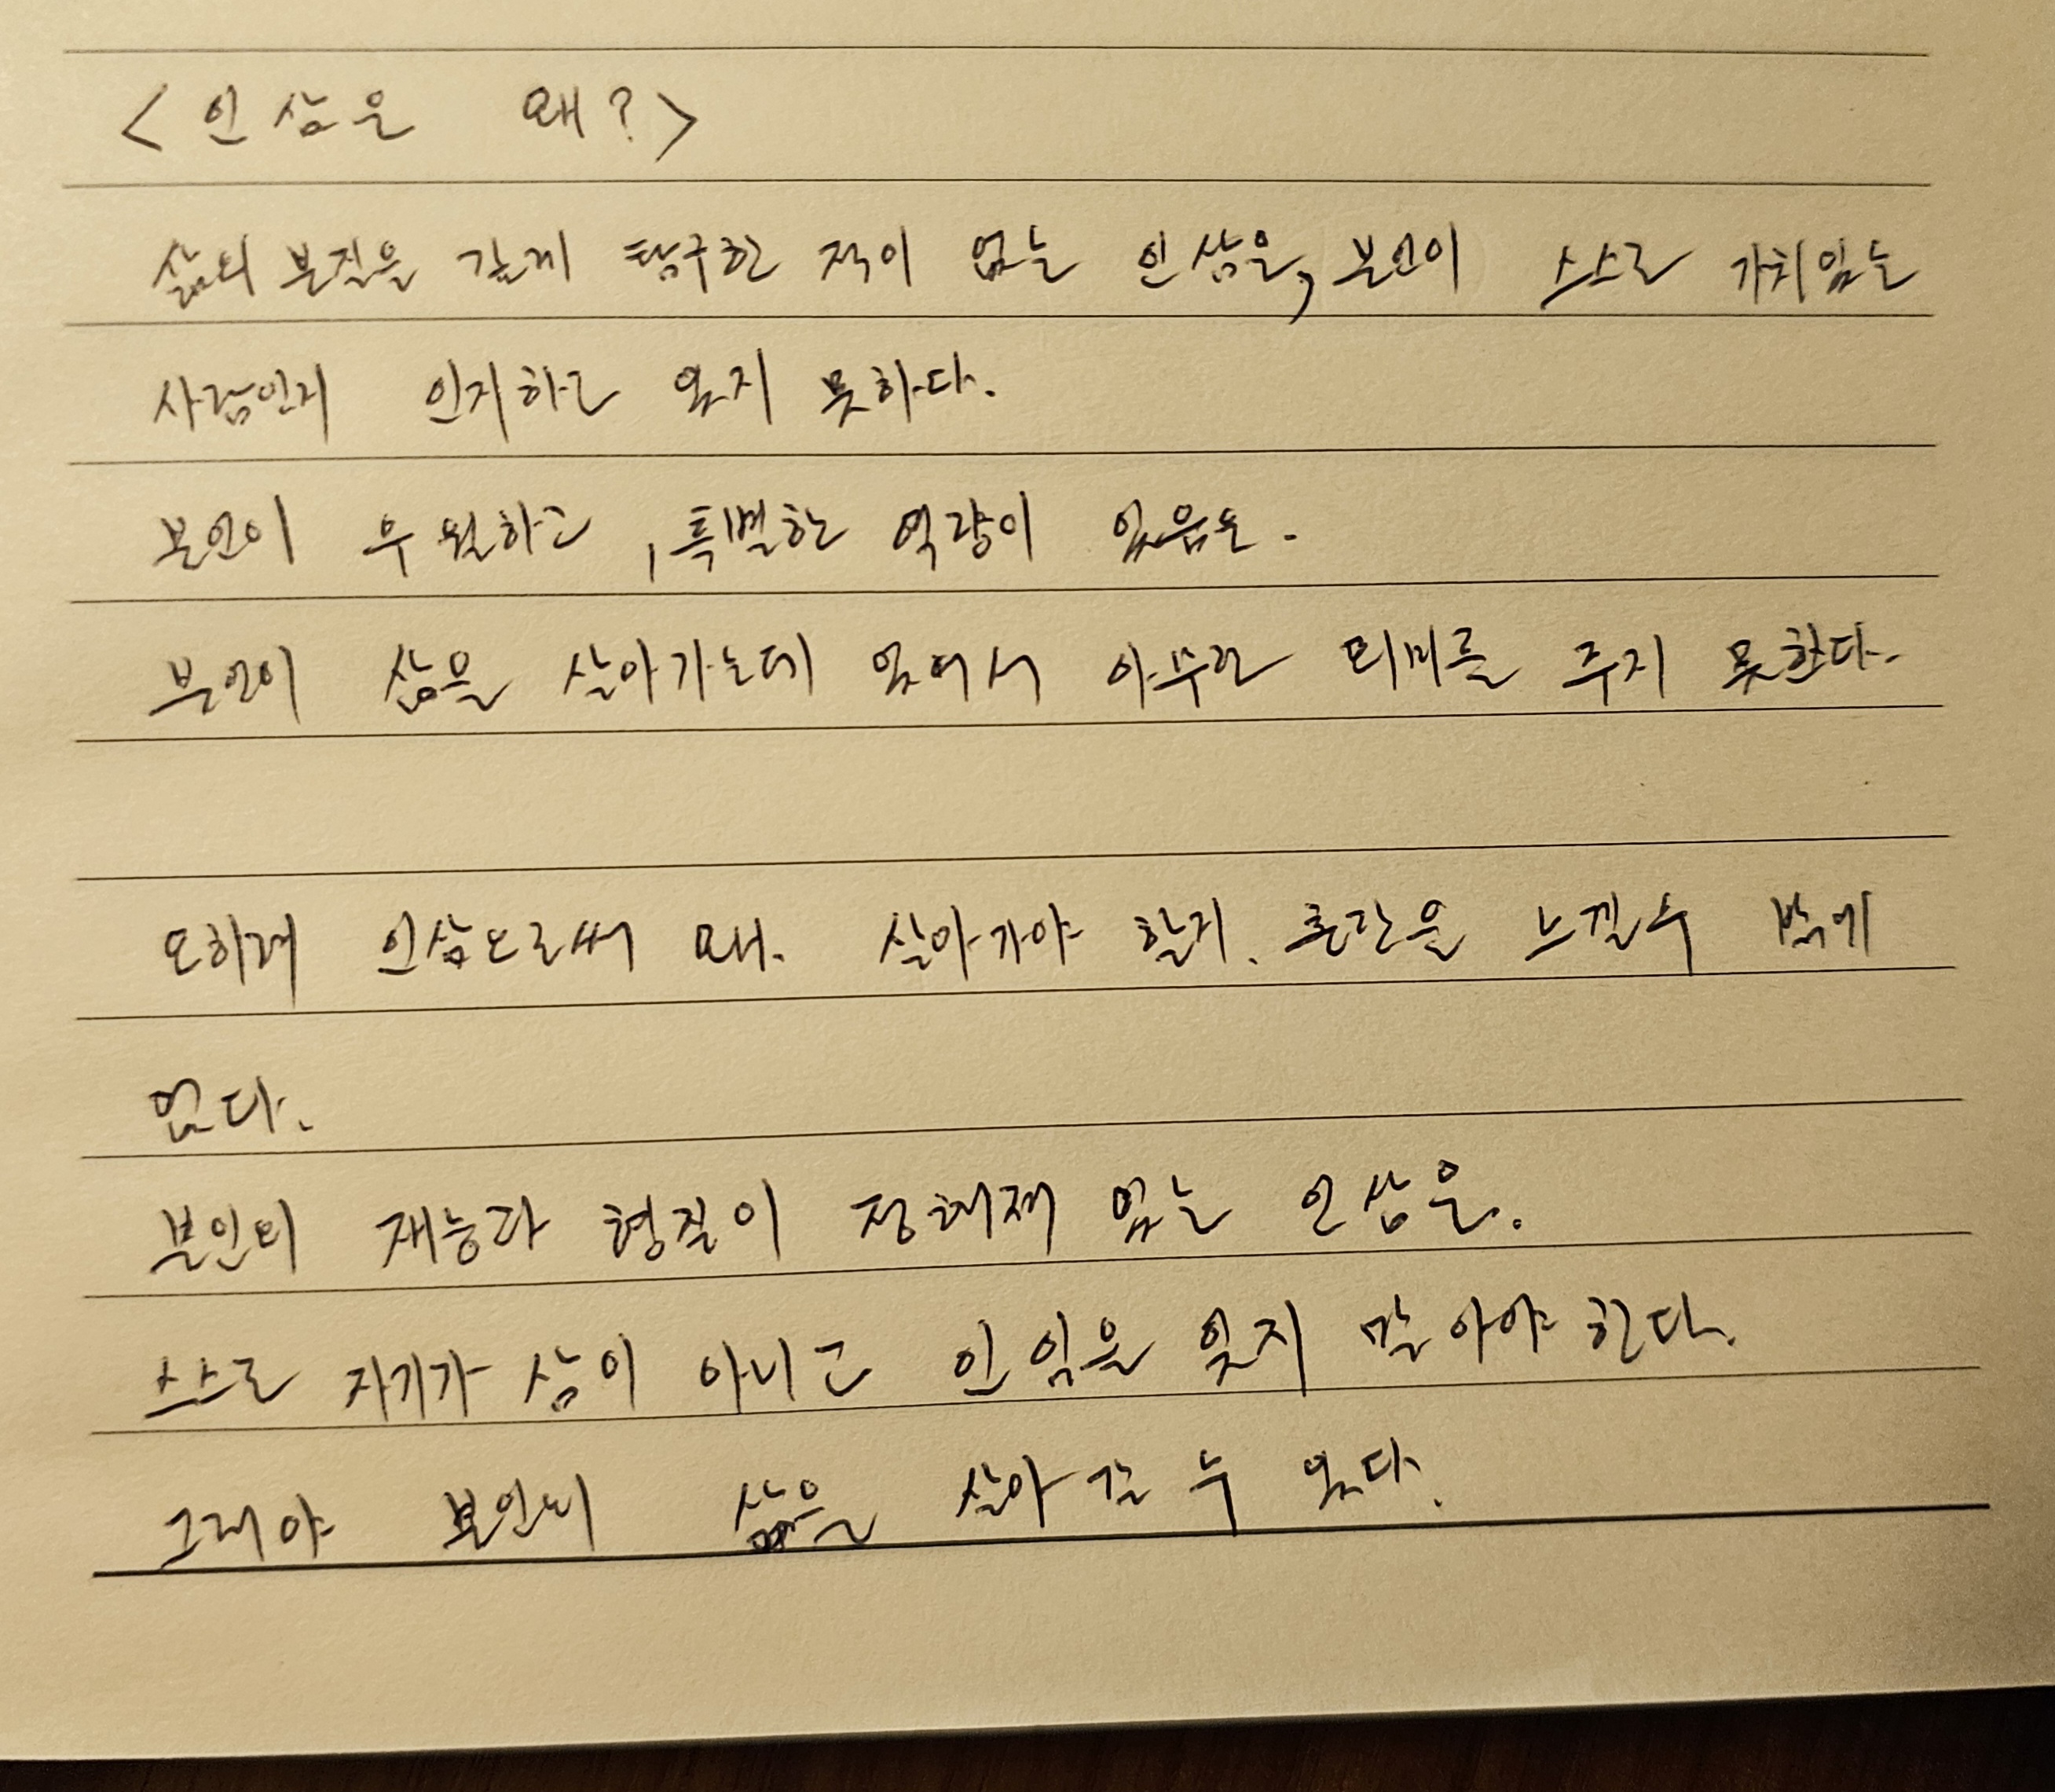 <인삼은 왜?>
삶의 본질을 깊게 탐구한 적이 없는 인삼은, 본인이 스스로 가치있는
사람인지 인지하고 있지 못하다.
본인이 우월하고, 특별한 역량이 있음은.
본인이 삶을 살아가는데 있어서 아무런 의미를 주지 못한다.
오히려 인삼으로써 왜. 살아가야 할지. 혼란을 느낄수 밖에
없다.
본인의 재능과 형질이 정해져 있는 인삼은.
스스로 자기가 삼이 아니고 인임을 잊지 말아야 한다.
그래야 본인의 삶을 살아갈 수 있다.